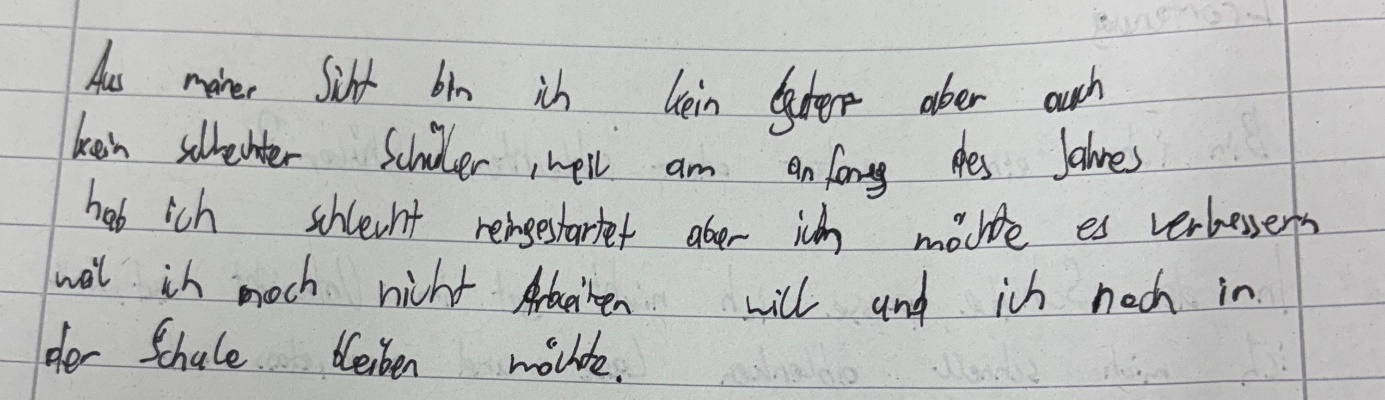 Aus meiner Sicht bin ich kein guter aber auch
kein schlechter Schüler, weil am anfang des Jahres
hab ich schlecht reingestartet aber ich möchte es verbessern
weil ich noch nicht Arbeiten will und ich noch in
der Schule bleiben möchte.